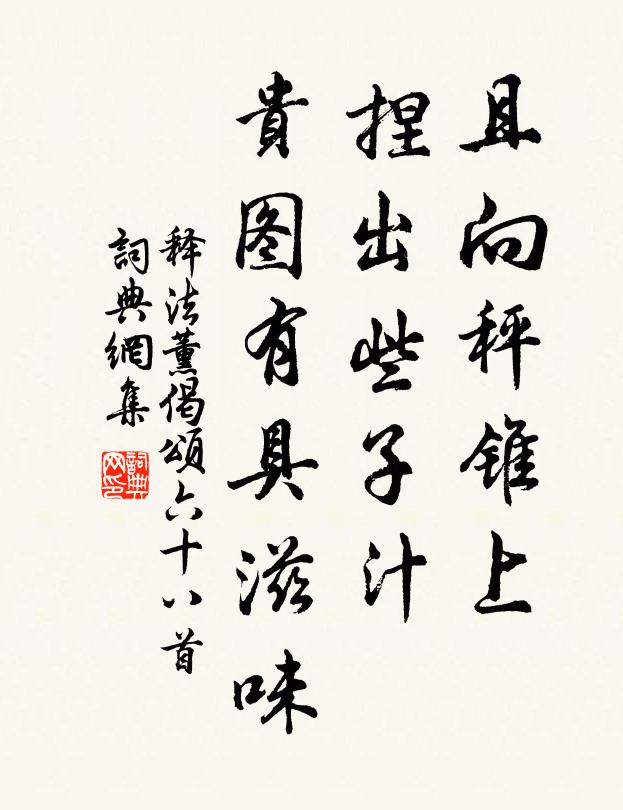 且向秤锥上
捏出些子汁
貴图有具滋味
释法薰偈頌六十八首
詞典網集
詞典网印